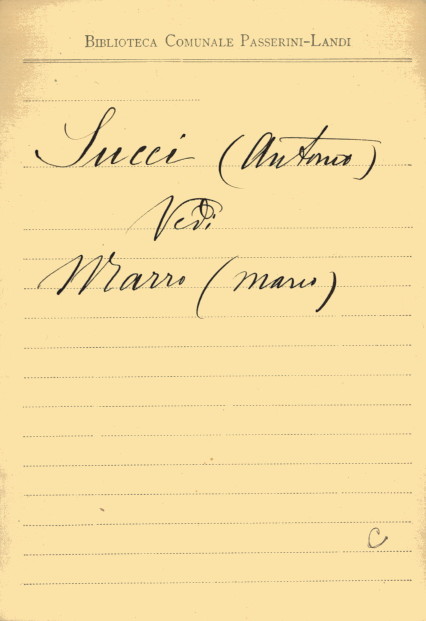 BIBLIOTECA COMUNALE PASSERINI-LANDI
Succi (Antonio)
Vedi
Marro (Marco)
C